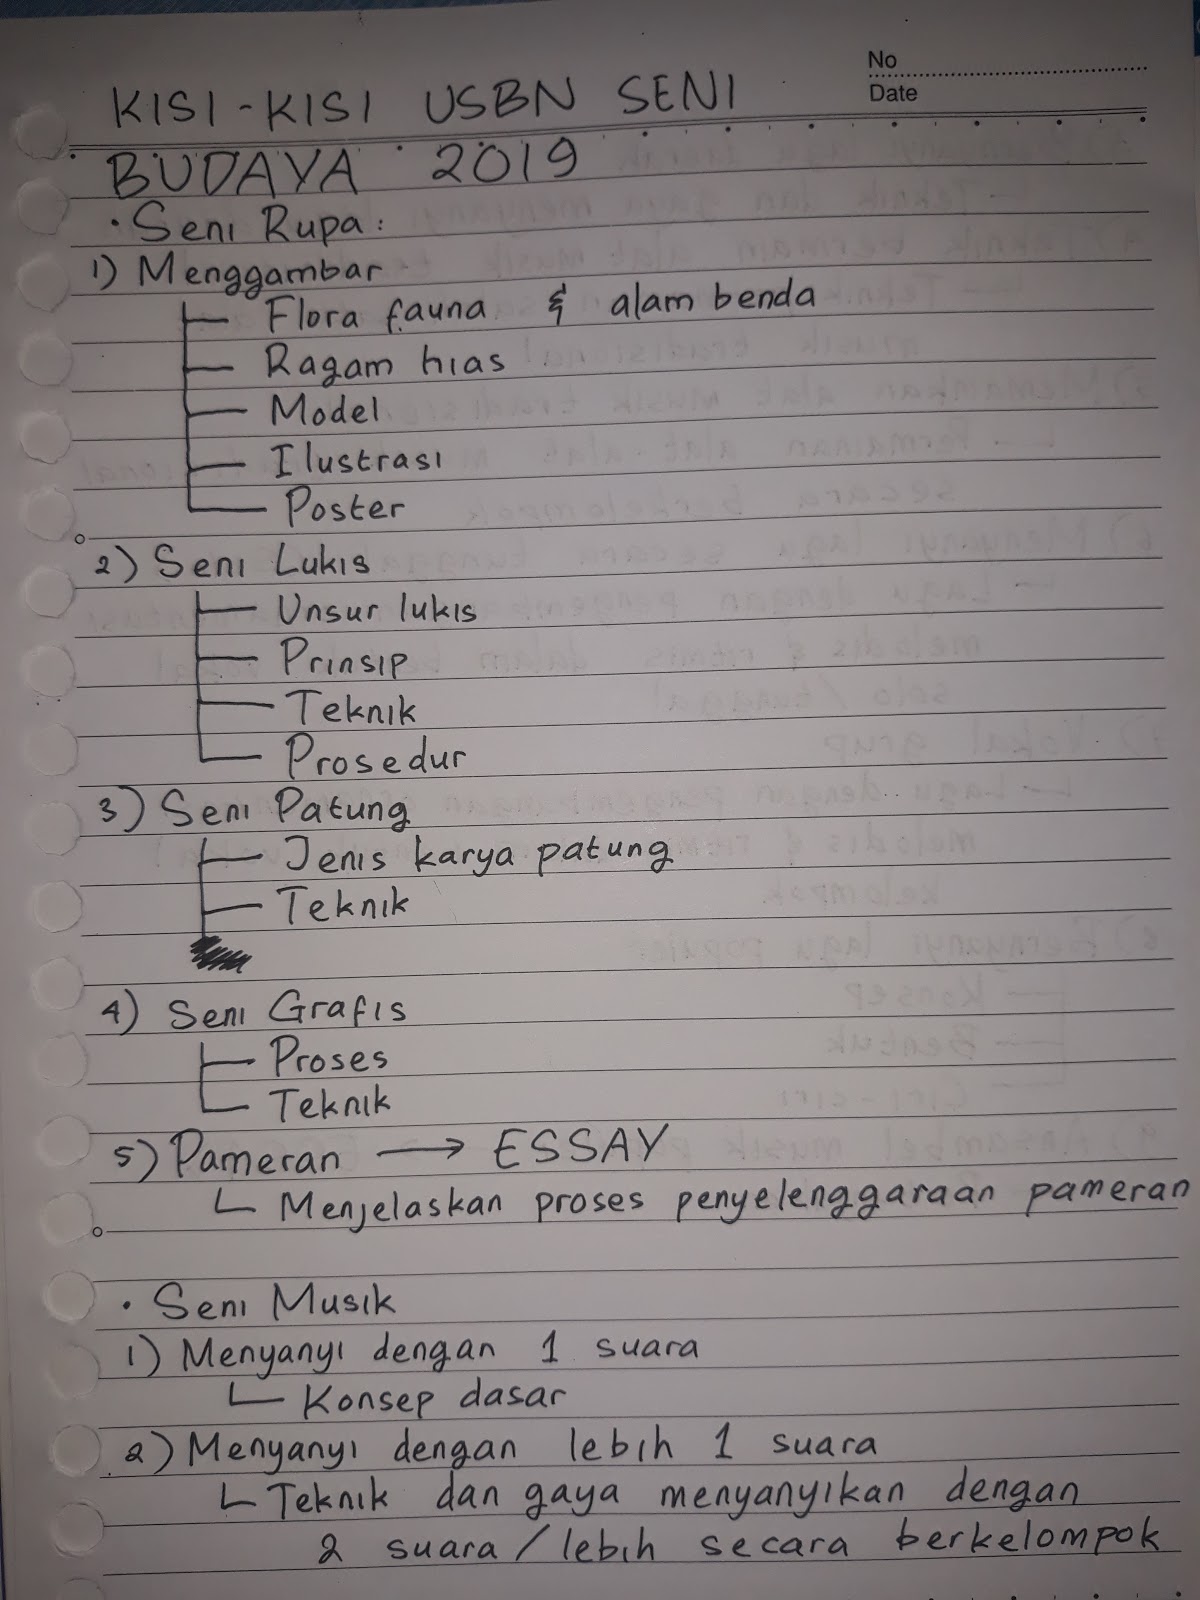 No
Date
KISI-KISI USBN SENI
BUDAYA 2019
• Seni Rupa:
1) Menggambar
Flora fauna & alam benda
Ragam hias
Model
Ilustrasi
Poster
2) Seni Lukis
Unsur lukis
Prinsip
Teknik
Prosedur
3) Seni Patung
Jenis karya patung
Teknik
4) Seni Grafis
Proses
Teknik
5) Pameran → ESSAY
Menjelaskan proses penyelenggaraan pameran
• Seni Musik
1) Menyanyi dengan 1 suara
Konsep dasar
2) Menyanyi dengan lebih 1 suara
Teknik dan gaya menyanyikan dengan
2 suara/lebih secara berkelompok